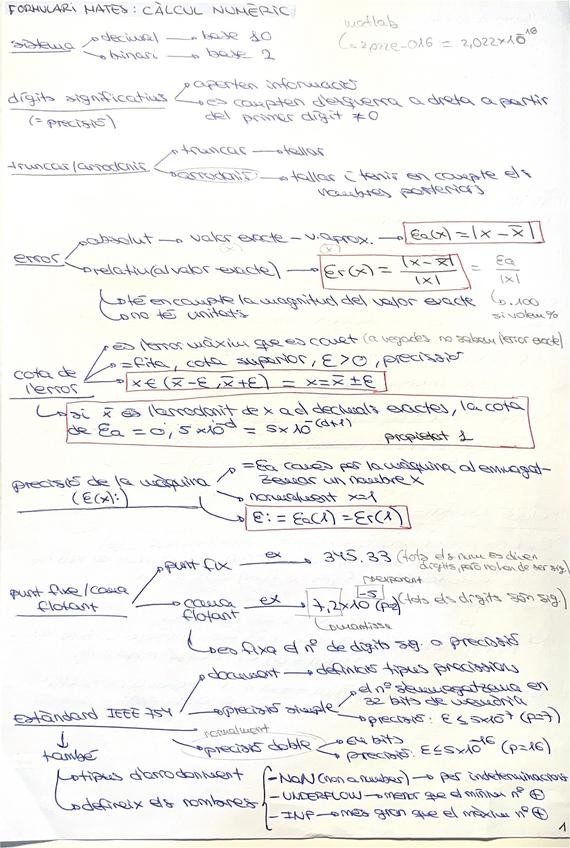 FORMULARI MATES: CÀLCUL NUMÈRIC
matlab
2,022e-016 = 2,022x10^-16
sistema
decimal → base 10
binari → base 2
dígits significatius
(= precisió)
aporten informació
es compten d'esquerra a dreta a partir
del primer dígit ≠0
truncar/arrodonir
truncar → tallar
arrodonir → tallar i tenir en compte els
nombres posteriors
error
absolut → valor exacte - v.aprox. → Ea(x) = |x - x̄|
(x) (x̄)
relatiu (al valor exacte) → Er(x) = |x - x̄| / |x| = Ea / |x|
té en compte la magnitud del valor exacte
no té unitats
·100
si volem %
cota de
l'error
es l'error màxim que es comet (a vegades no sabem l'error exacte)
= fita, cota superior, ε>0, precissió
x ∈ (x̄-ε, x̄+ε) = x = x̄ ± ε
si x̄ es l'arrodonit de x a d decimals exactes, la cota
de Ea = 0,5x10^-d = 5x10^-(d+1)
propietat 1
precisió de la màquina
(ε(x):)
= Ea comès per la màquina al emmagat-
zemar un nombre x
normalment x=1
ε := Ea(1) = Er(1)
punt fixe/coma
flotant
punt fix → ex → 345.33 (tots els num es diuen
dígits, però no han de ser sig.)
coma
flotant → ex → 7,2x10^-5 (p=2) (tots els dígits són sig.)
exponent
mantissa
es fixa el nº de dígits sig. o precissió
Estàndard IEEE 754
document → defineix tipus precissions
precisió simple
el nº s'emmagatzema en
32 bits de memòria
precisió: ε ≤ 5x10^-7 (p=7)
normalment
precisió doble
64 bits
precisió: ε ≤ 5x10^-16 (p=16)
també
tipus d'arrodoniment
defineix els nombres
- NaN (non a number) → per indeterminacions
- UNDERFLOW → menor que el mínim nº ⊕
- INF → més gran que el màxim nº ⊕
1